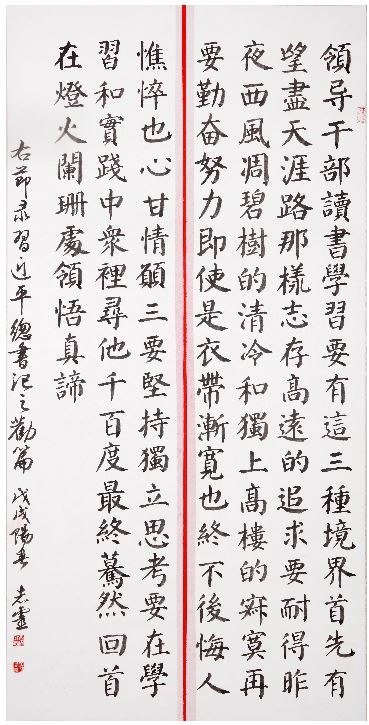 領导干部讀書學習要有這三種境界首先有
望盡天涯路那樣志存高遠的追求要耐得昨
夜西風凋碧樹的清冷和獨上高樓的寂寞再
要勤奋努力即使是衣帶漸寬也終不後悔人
憔悴也心甘情願三要堅持獨立思考要在學
習和實踐中衆裡尋他千百度最終驀然回首
在燈火闌珊處領悟真諦
右節录習近平總書记之勸篇 戊戌陽春